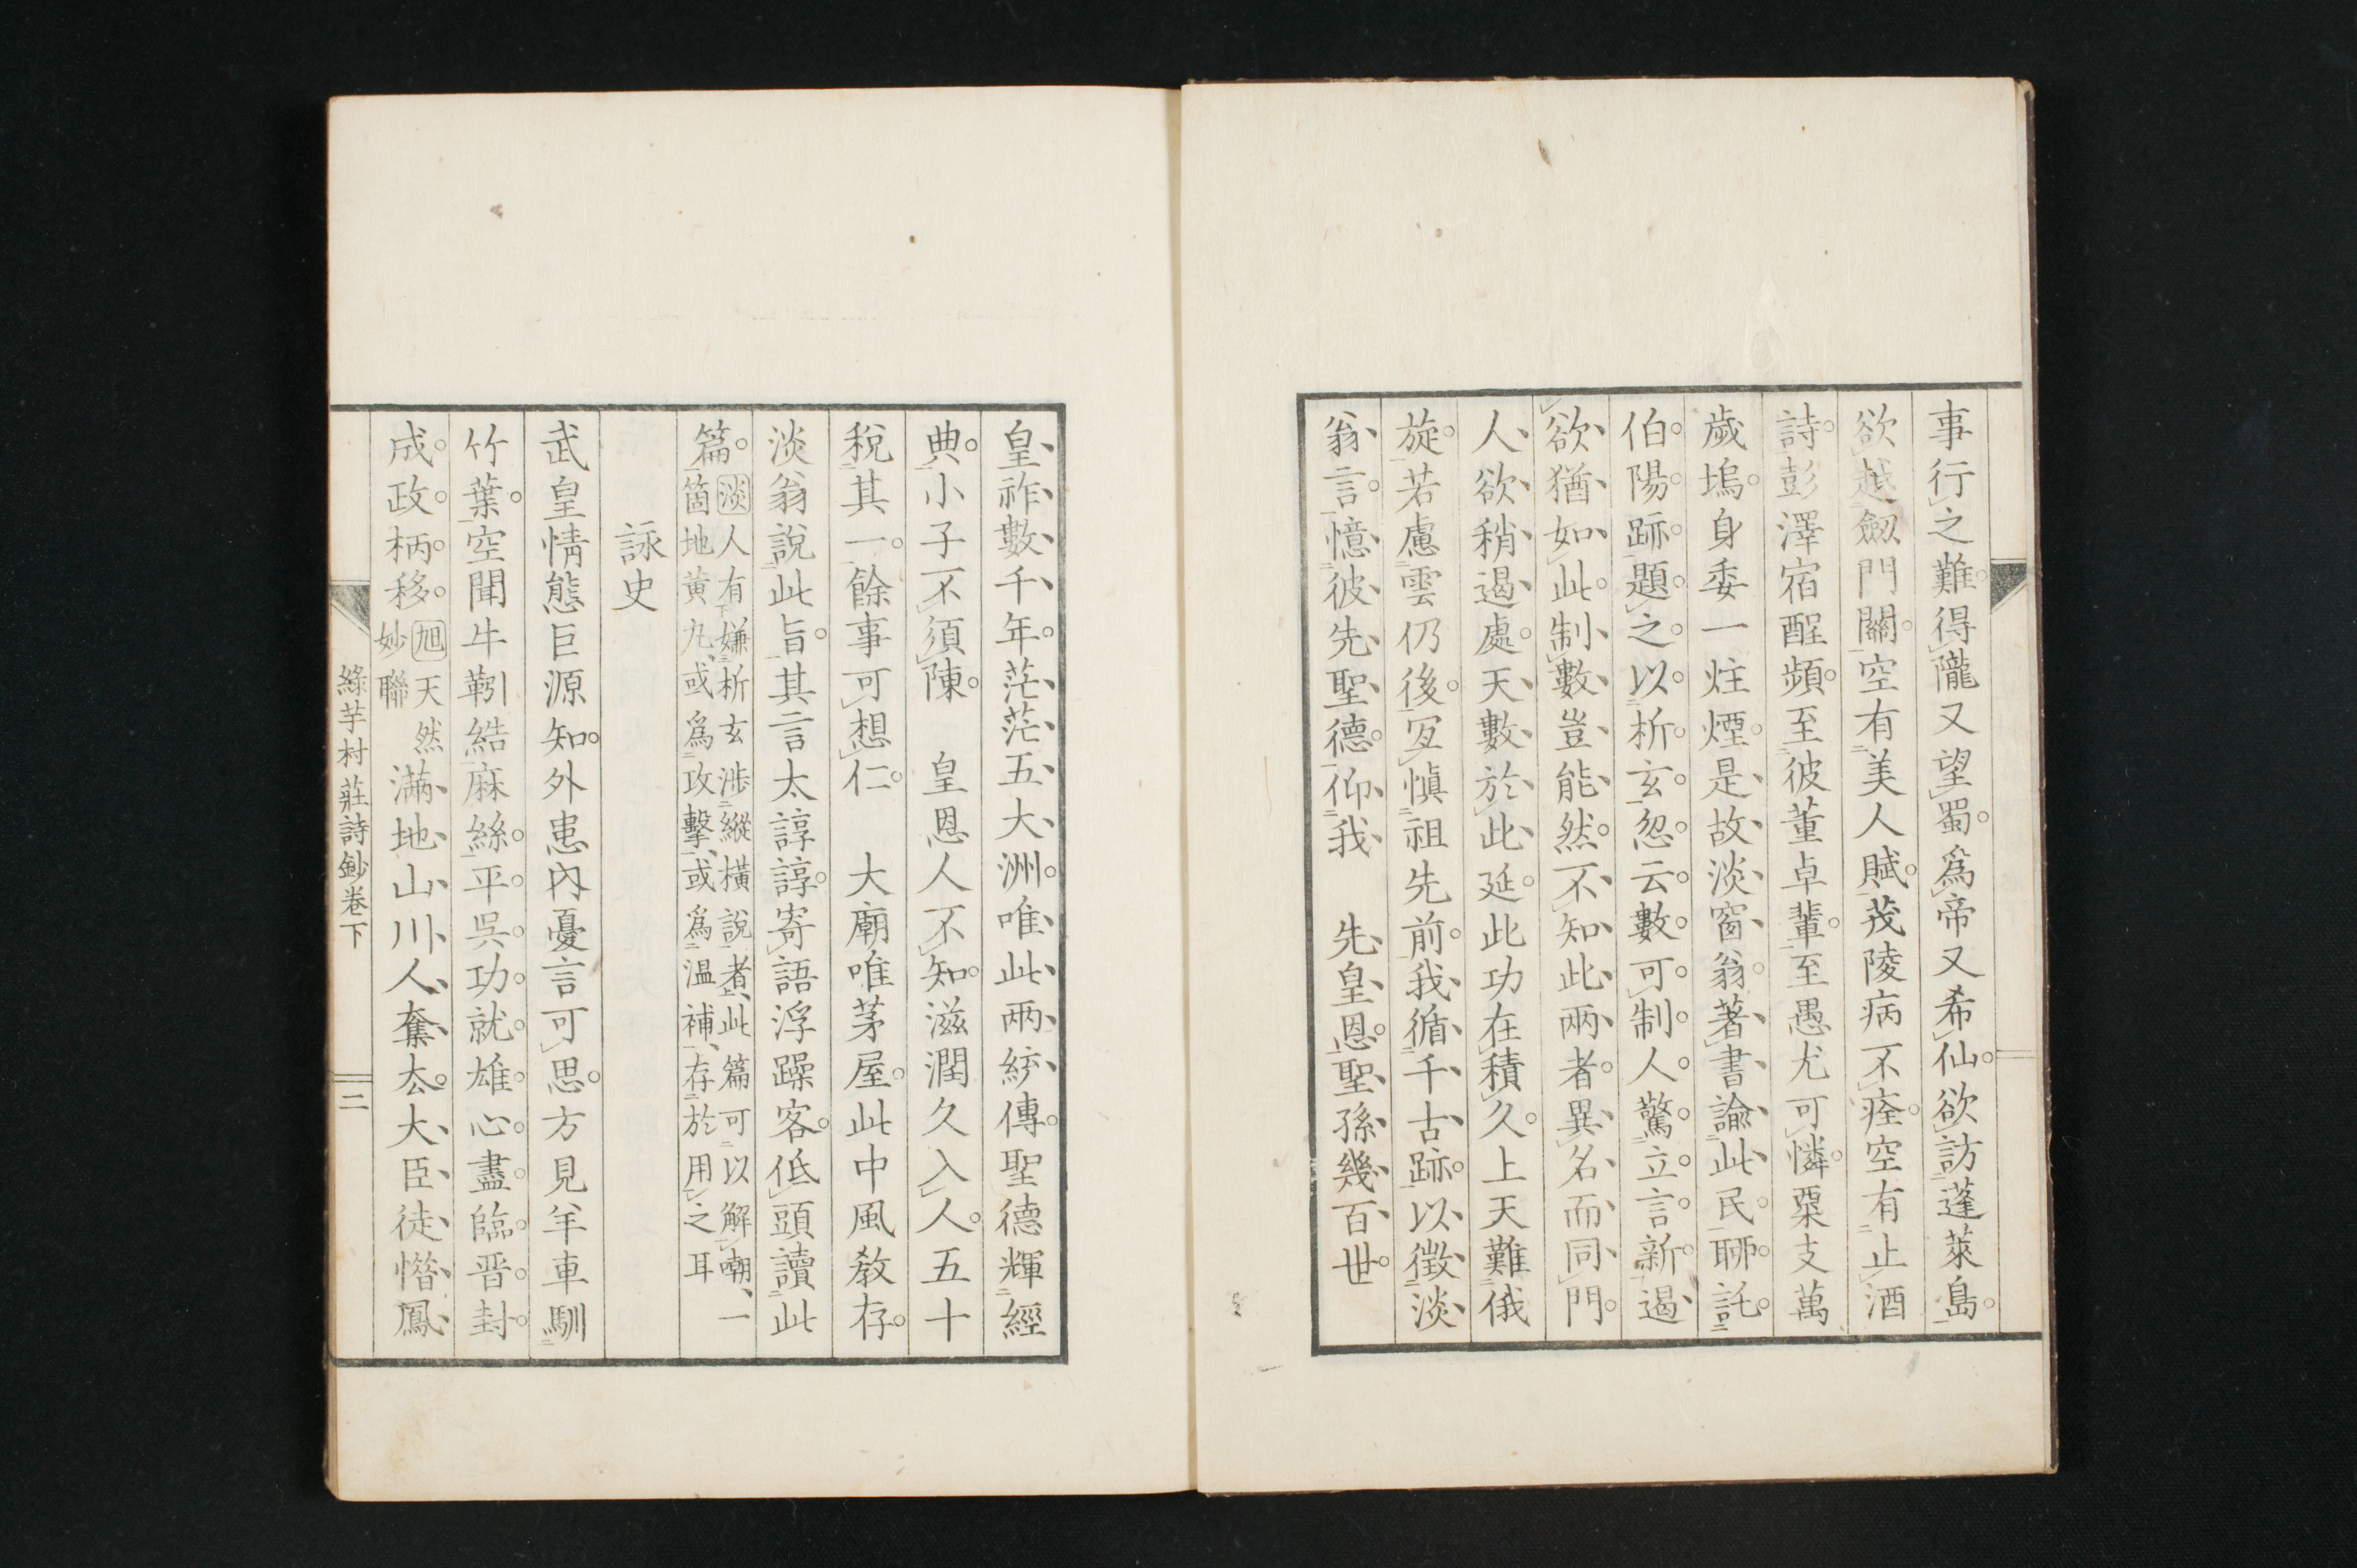 事行之難得隴又望蜀爲帝又希仙欲訪蓬萊島
欲越劔門關空有美人賦茂陵病不痊空有止酒
詩彭澤宿酲頻至彼董卓輩至愚尤可憐粟支萬
歲塢身委一炷煙是故淡窗翁著書諭此民聊託
伯陽跡題之以析玄忽云數可制人驚立言新遏
欲猶如此制數豈能然不知此兩者異名而同門
人欲稍遏處天數於此延此功在積久上天難俄
旋若慮雲仍後宐愼祖先前我循千古跡以徵淡
翁言憶彼先聖德仰我　先皇恩聖孫幾百世
皇祚數千年茫茫五大洲唯此兩統傳聖德輝經
典小子不須陳　皇恩人不知滋潤久入人五十
稅其一餘事可想仁　大廟唯茅屋此中風敎存
淡翁說此旨其言太諄諄寄語浮躁客低頭讀此
篇
淡人有嫌析玄渉縱橫說者此篇可以解嘲一
箇地黄丸或爲攻擊或爲溫補存於用之耳
詠史
武皇情態巨源知外患內憂言可思方見羊車馴
竹葉空聞牛靷結麻絲平吳功就雄心盡臨晋封
成政柄移
旭天然
妙聯
滿地山川人奪去大臣徒憯鳳
綠芋村莊詩鈔卷下
二